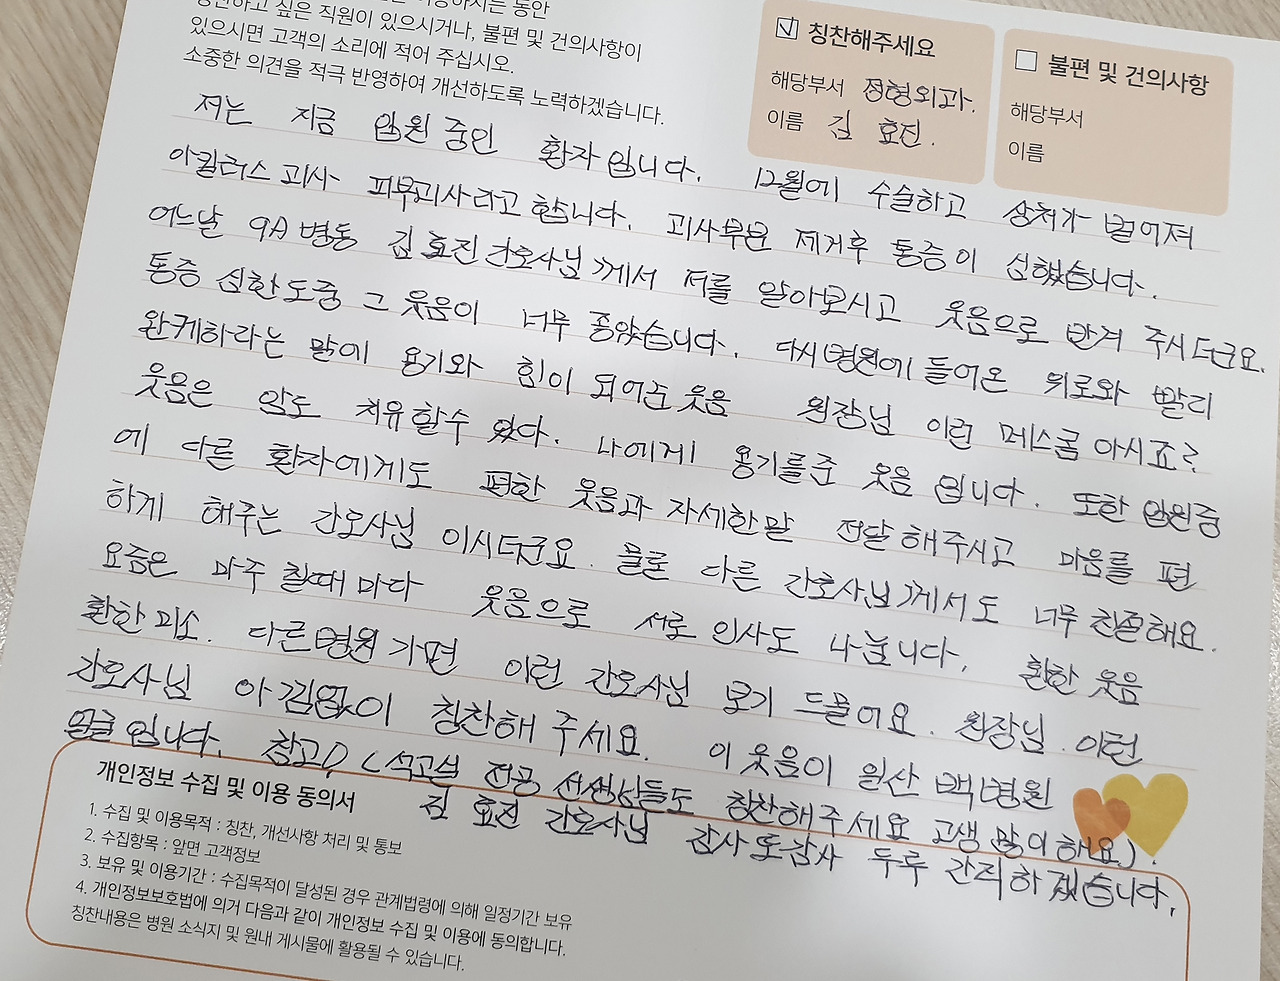 있으시면 고객의 소리에 적어 주십시오.
칭찬하고 싶은 직원이 있으시거나, 불편 및 건의사항이
소중한 의견을 적극 반영하여 개선하도록 노력하겠습니다.
칭찬해주세요
해당부서 정형외과.
이름 김 효진.
불편 및 건의사항
해당부서
이름
저는 지금 입원중인 환자입니다. 12월에 수술하고 상처가 벌어져
아킬러스 괴사 피부괴사라고 합니다. 괴사부분 제거후 통증이 심했습니다.
어느날 9A병동 김효진간호사님께서 저를 알아보시고 웃음으로 반겨 주시더군요.
통증 심한도중 그 웃음이 너무 좋았습니다. 다시병원에 들어온 위로와 빨리
완케하라는 말에 용기와 힘이 되어준 웃음 원장님 이런 메스콤 아시죠?
웃음은 암도 치유할수 있다. 나에게 용기를준 웃음 입니다. 또한 입원중
에 다른 환자에게도 편한 웃음과 자세한말 전달해주시고 마음을 편
하게 해주는 간호사님 이시더군요. 물론 다른 간호사님께서도 너무 친절해요.
요즘은 마주칠때마다 웃음으로 서로 인사도 나눕니다. 환한 웃음
환한미소. 다른병원가면 이런 간호사님 보기 드물어요. 원장님. 이런
간호사님 아낌없이 칭찬해 주세요. 이 웃음이 일산 백병원
얼굴입니다. 참고) (석고실 전공 선생님들도 칭찬해주세요 고생 많이 하요).
김 효진 간호사님 감사또감사 두루 간직하겠습니다.
개인정보 수집 및 이용 동의서
1. 수집 및 이용목적 : 칭찬, 개선사항 처리 및 통보
2. 수집항목 : 앞면 고객정보
3. 보유 및 이용기간 : 수집목적이 달성된 경우 관계법령에 의해 일정기간 보유
4. 개인정보보호법에 의거 다음과 같이 개인정보 수집 및 이용에 동의합니다.
칭찬내용은 병원 소식지 및 원내 게시물에 활용될 수 있습니다.